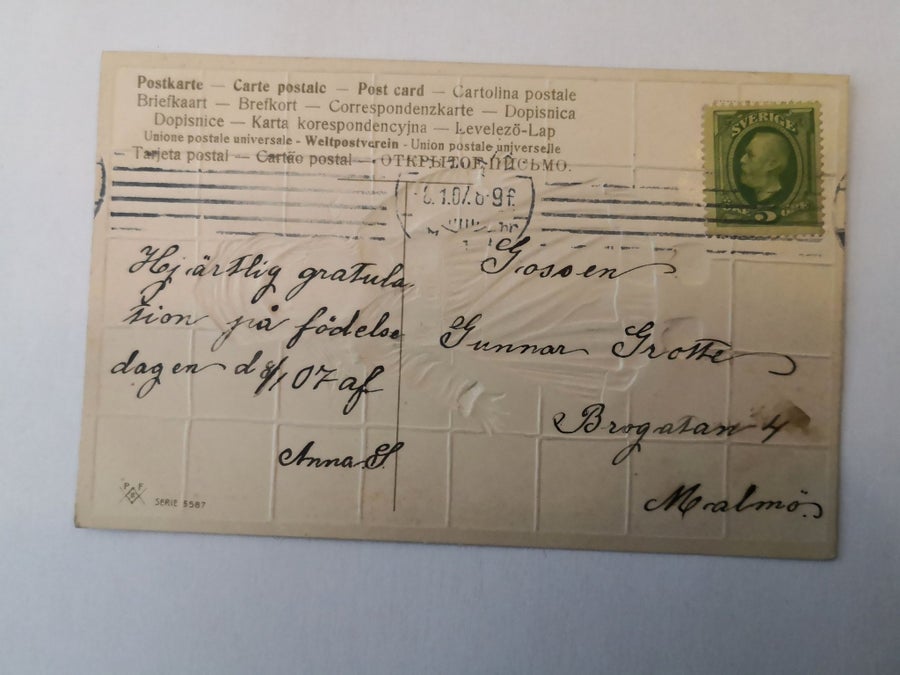 Postkarte — Carte postale — Post card — Cartolina postale
Briefkaart — Brefkort — Correspondenzkarte — Dopisnica
Dopisnice — Karta korespondencyjna — Levelező-Lap
Unione postale universale - Weltpostverein - Union postale universelle
Tarjeta postal — Cartão postal — ОТКРЫТОЕ ПИСЬМО.
SVERIGE
5
8.1.07. 8-9 f.
Hjärtlig gratula
tion på födelse
dagen d 8/1 07 af
Anna S.
Gossen
Gunnar Grotte
Brogatan 4
Malmö.
P F
SERIE 5587